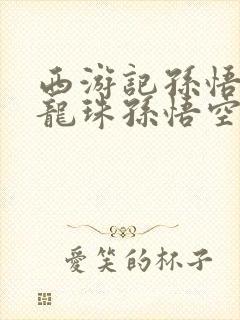 西游記孫悟
龍珠孫悟空
愛笑的杯子